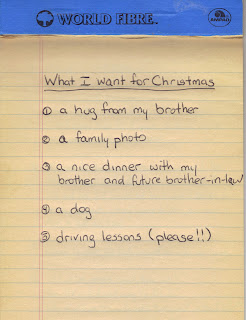 WORLD FIBRE.
What I want for Christmas
① a hug from my brother
② a family photo
③ a nice dinner with my
brother and future brother-in-law
④ a dog
⑤ driving lessons (please!!)